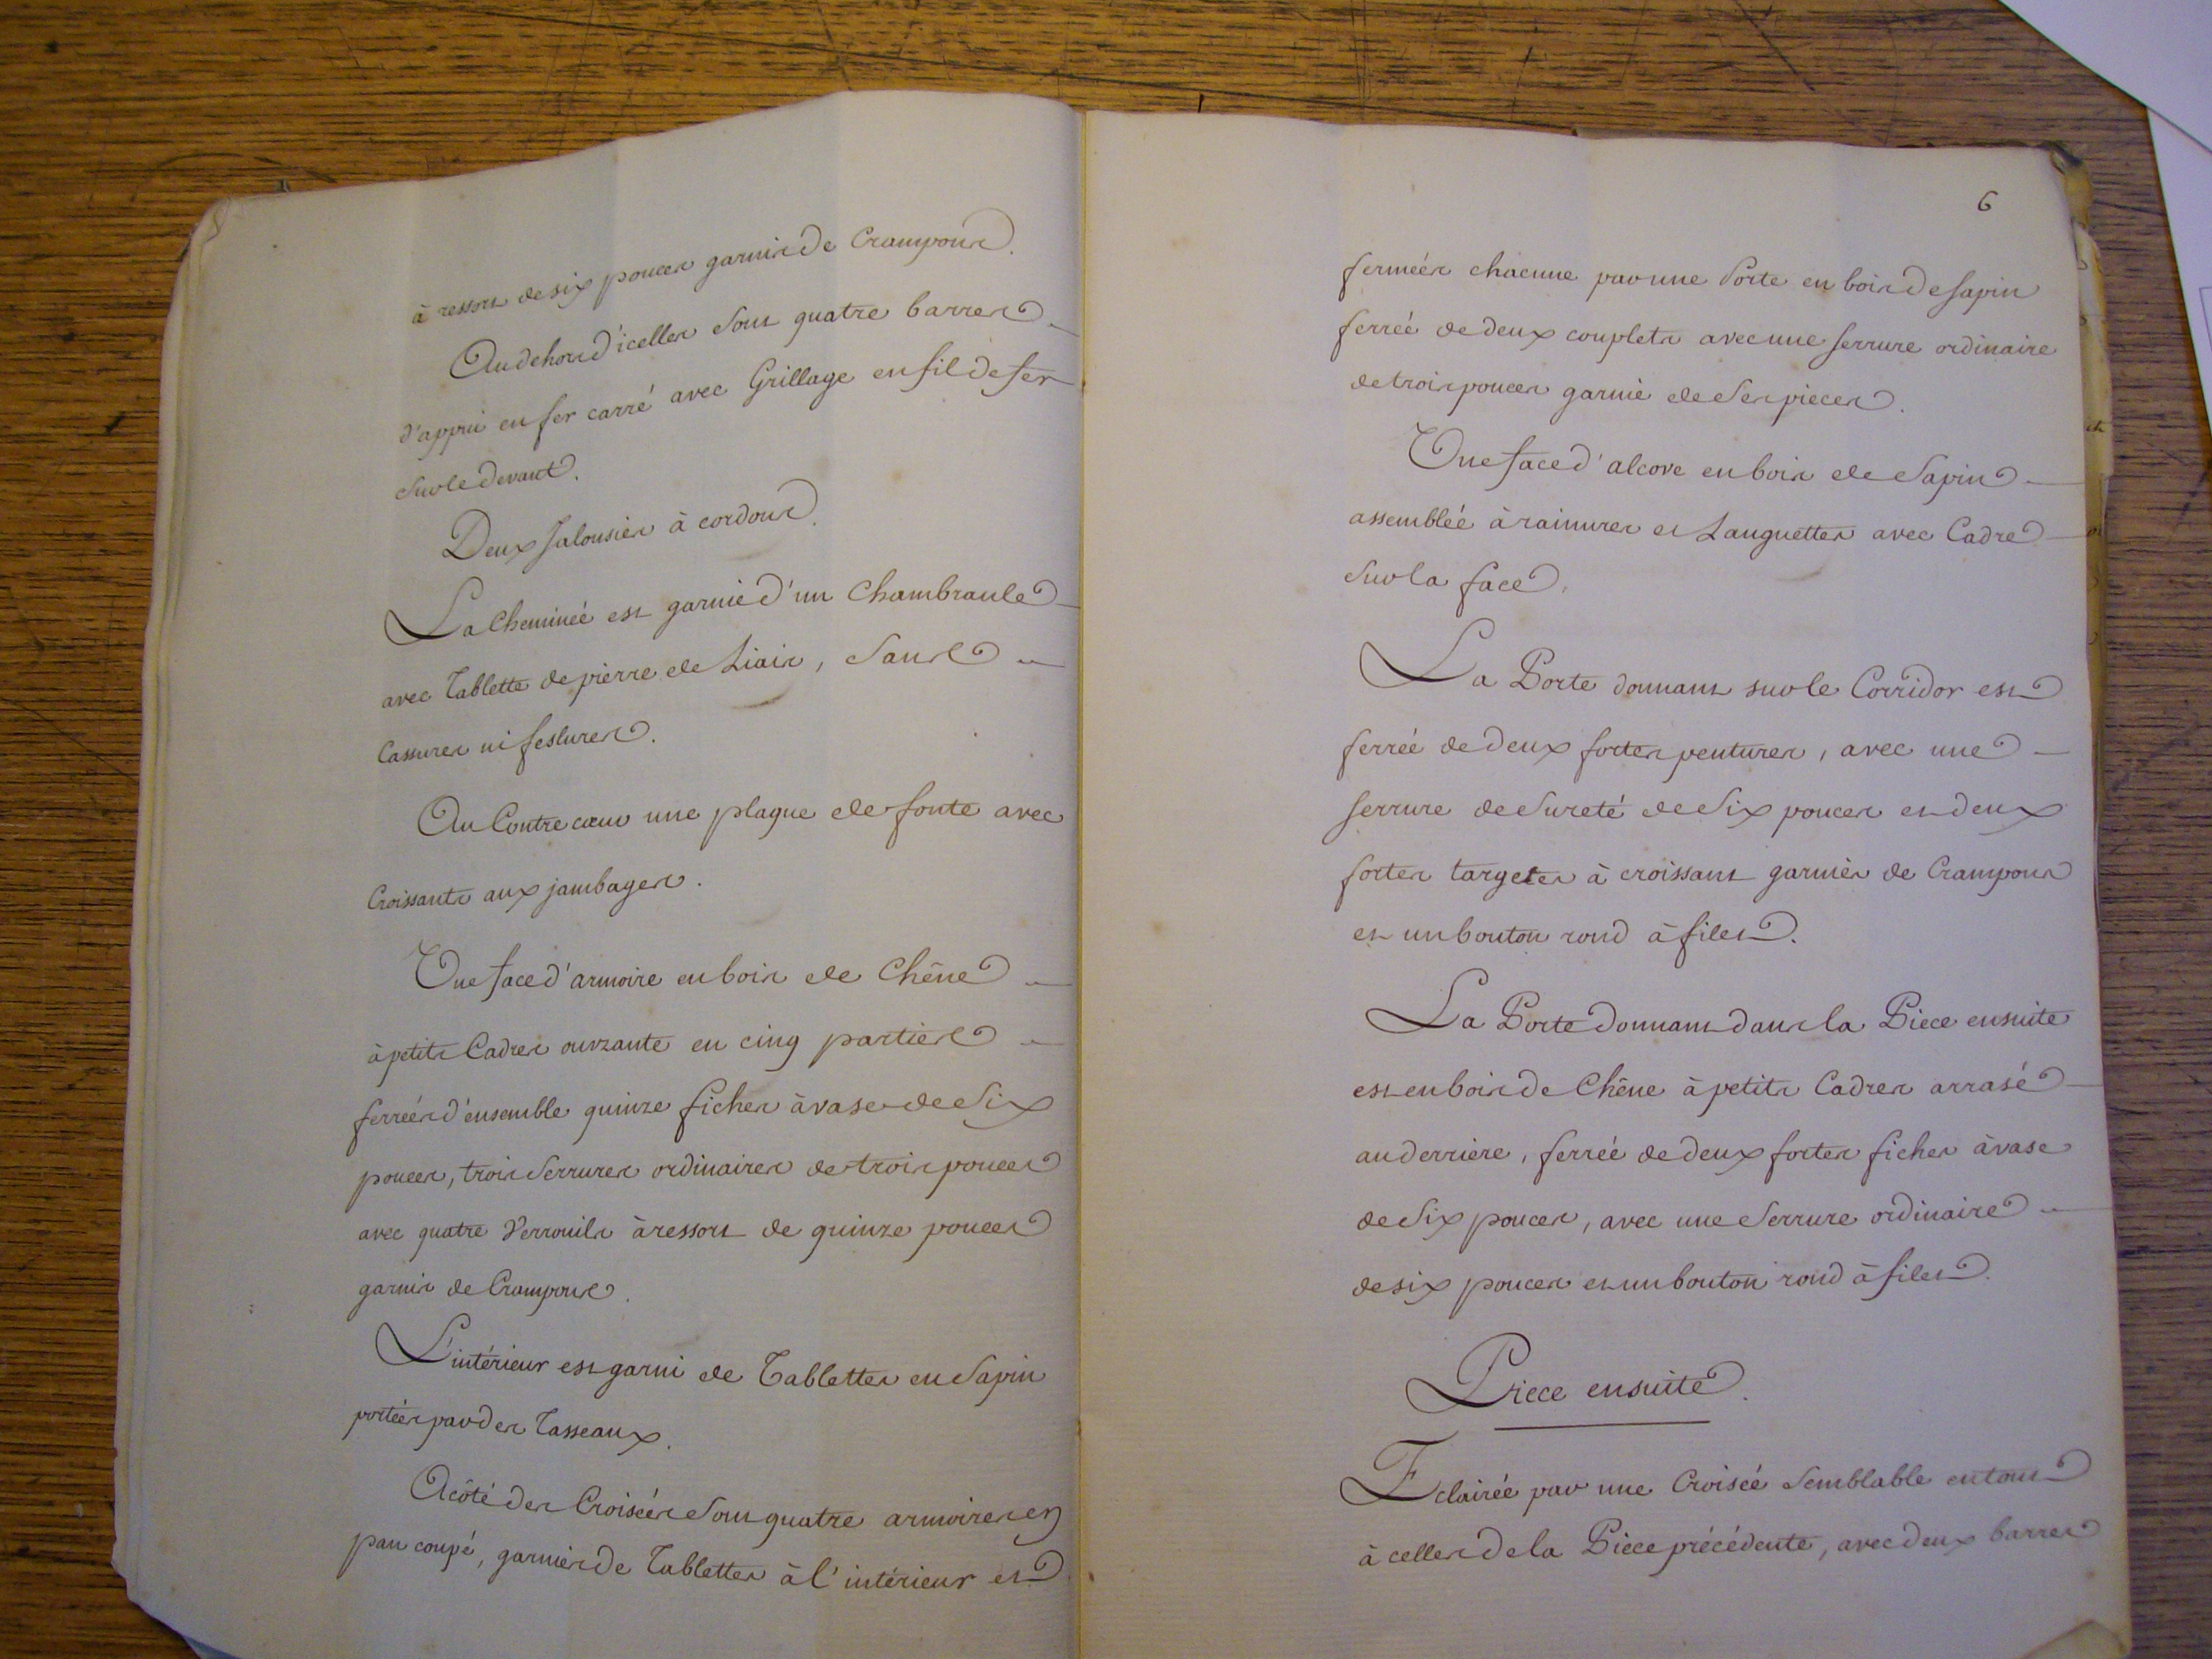 à ressort de six pouces garnis de Crampons.
Au dehors d'icelles sont quatre barres
d'appui en fer carré avec Grillage en fil de fer
sur le devant.
Deux Jalousies à cordons.
La Cheminée est garnie d'un Chambranle
avec Tablette de pierre de Liais, sans
Cassures ni feslures.
Au Contre cœur une plaque de fonte avec
Croissants aux jambages.
Une face d'armoire en bois de Chêne
à petits Cadres ouvrante en cinq parties
ferrées d'ensemble quinze fiches à vase de Six
pouces, trois Serrures ordinaires de trois pouces
avec quatre Verrouils à ressort de quinze pouces
garnis de Crampons.
L'intérieur est garni de Tablettes en Sapin
portées par des Tasseaux.
A côté des Croisées sont quatre armoires en
pan coupé, garnies de Tablettes à l'intérieur et
6
fermées chacune par une Porte en bois de sapin
ferrée de deux couplets avec une serrure ordinaire
de trois pouces garnie de Ses pieces.
Une face d'alcove en bois de Sapin
assemblée à rainures et Languettes avec Cadre
Sur la face.
La Porte donnant sur le Corridor est
ferrée de deux fortes pentures, avec une
serrure de Sureté de Six pouces et deux
fortes targetes à croissant garnies de Crampons
et un bouton rond à filet.
La Porte donnant dans la Piece ensuite
est en bois de Chêne à petits Cadres arrasé
au derrière, ferrée de deux fortes fiches à vase
de Six pouces, avec une Serrure ordinaire
de six pouces et un bouton rond à filet.
Piece ensuite.
Eclairée par une Croisée Semblable en tout
à celles de la Piece précédente, avec deux barres